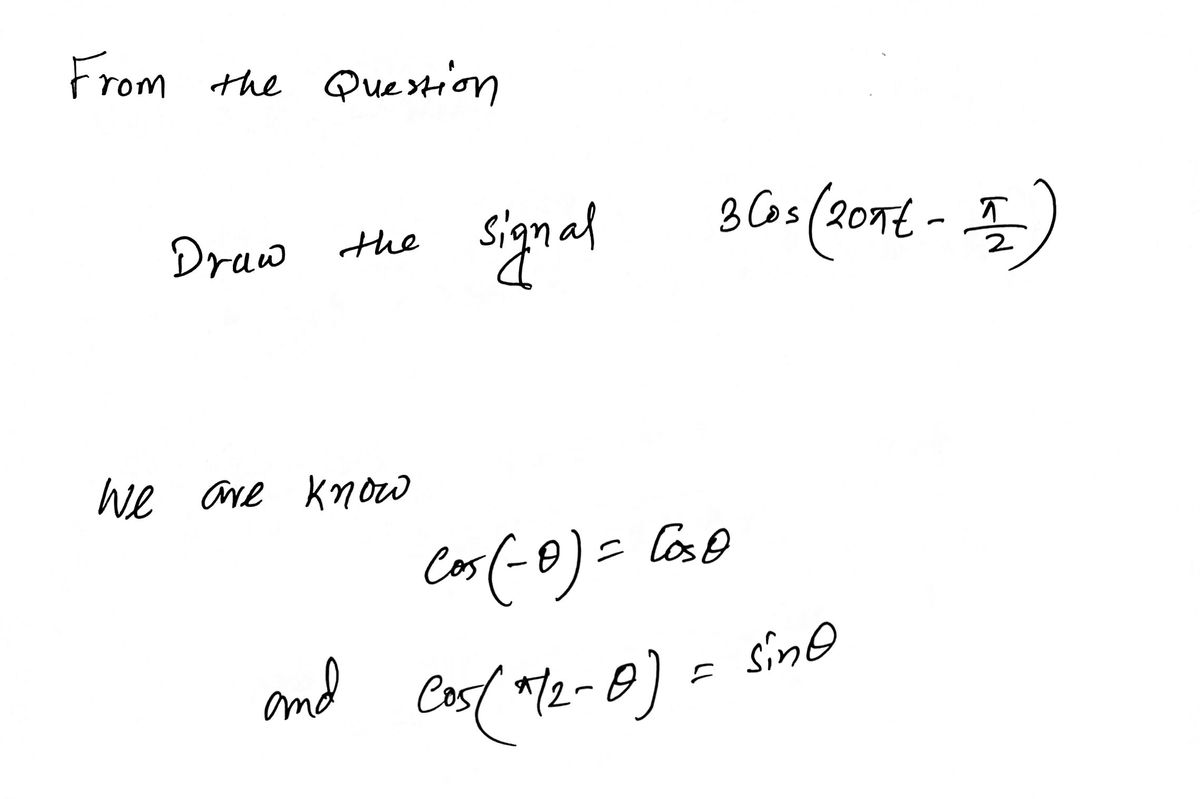 From the Question
Draw the signal 3 Cos(20πt - π/2)
We are know
Cos(-θ) = Cosθ
and Cos(π/2 - θ) = sinθ